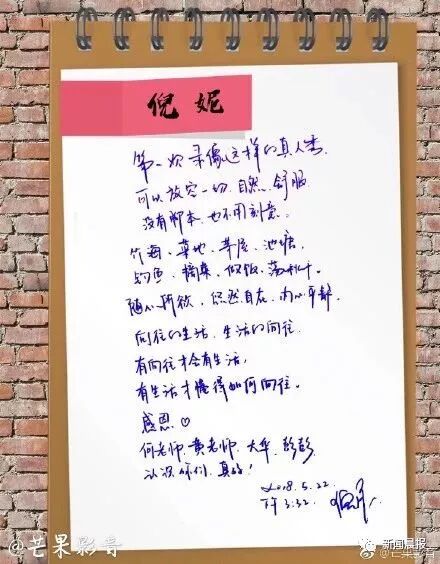 倪妮
第一次录像这样的真人秀.
可以放空一切.自然.舒服
没有脚本.也不用刻意。
竹海、菜地、茅屋、池塘,
钓鱼、摘菜、做饭、荡秋千.
随心所欲,悠然自在.内心平静.
向往的生活.生活的向往.
有向往才会有生活,
有生活才懂得如何向往。
感恩♡
何老师.黄老师.大华.彭彭
认识你们,真好!
2018.5.22.
下午3:32.
@芒果影音
新闻晨报
@芒果影音